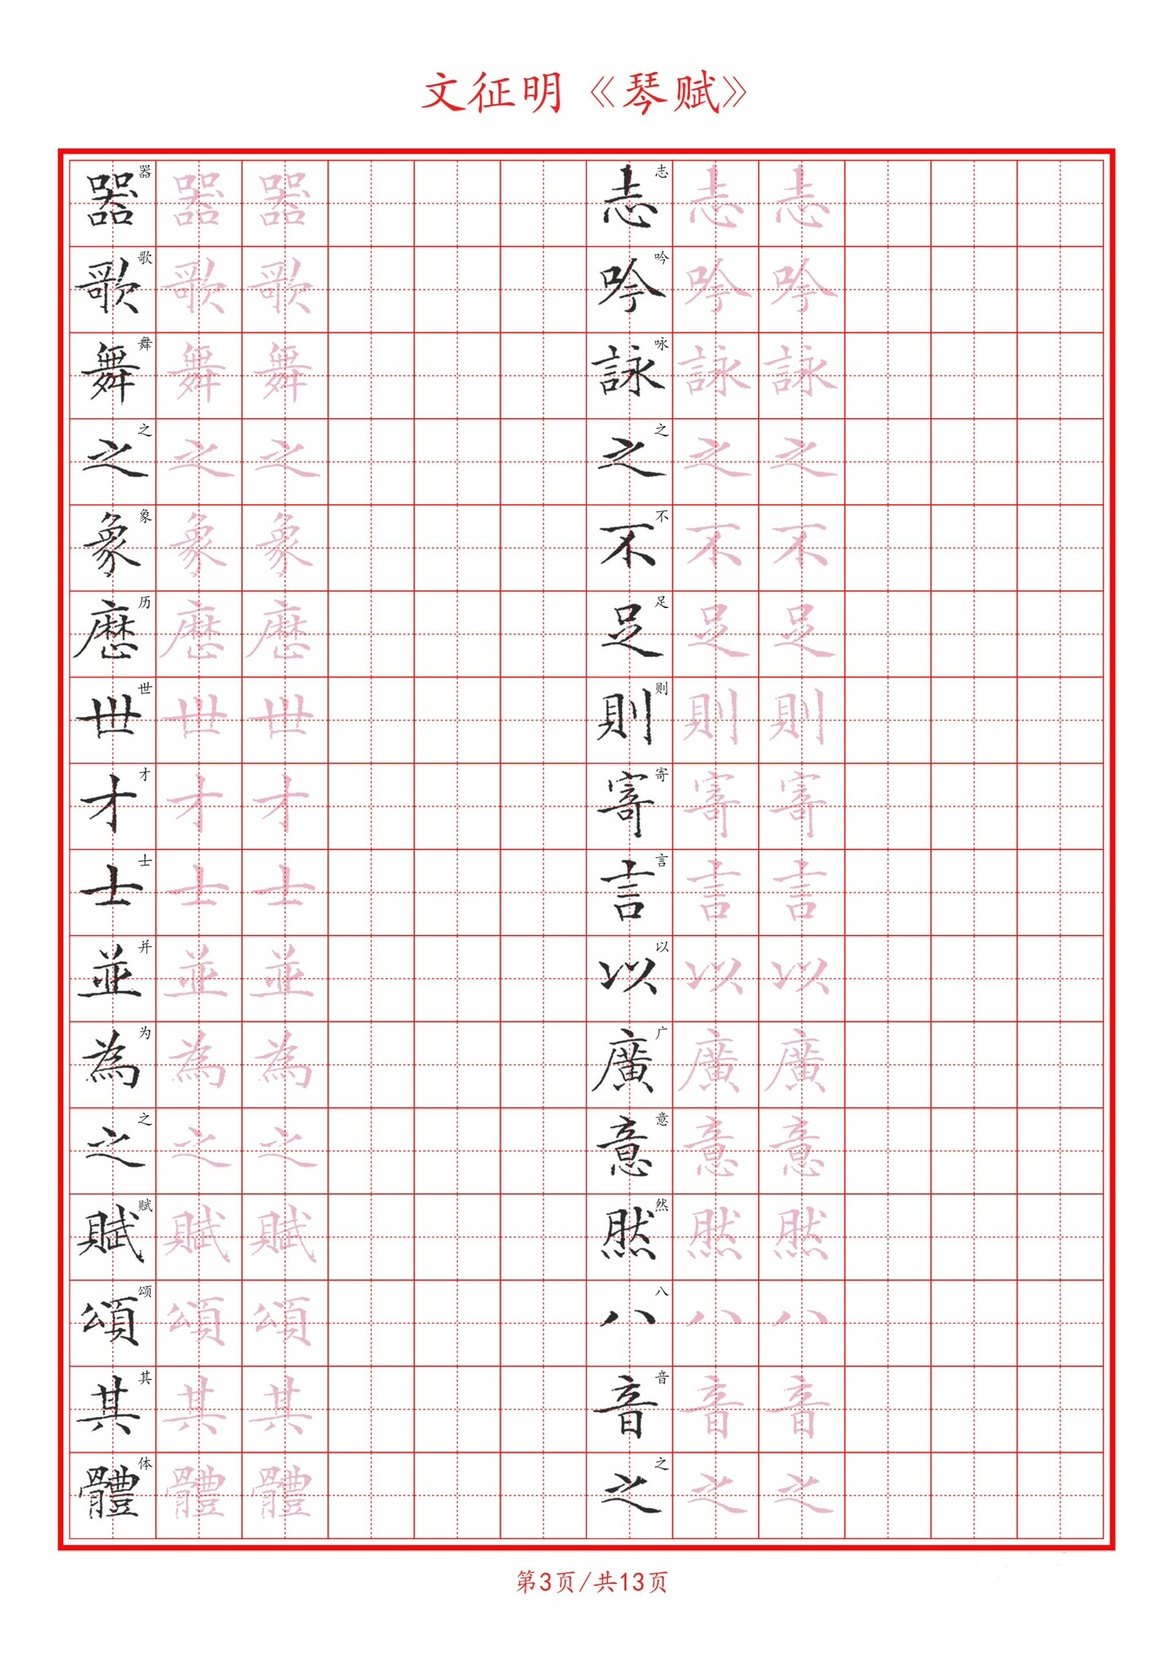 文征明《琴赋》
志吟詠之不足則寄言以廣意然八音之
志吟咏之不足则寄言以广意然八音之
志吟詠之不足則寄言以廣意然八音之
志吟詠之不足則寄言以廣意然八音之
器歌舞之象歷世才士並為之賦頌其體
器歌舞之象历世才士并为之赋颂其体
器歌舞之象歷世才士並為之賦頌其體
器歌舞之象歷世才士並為之賦頌其體
第3页/共13页